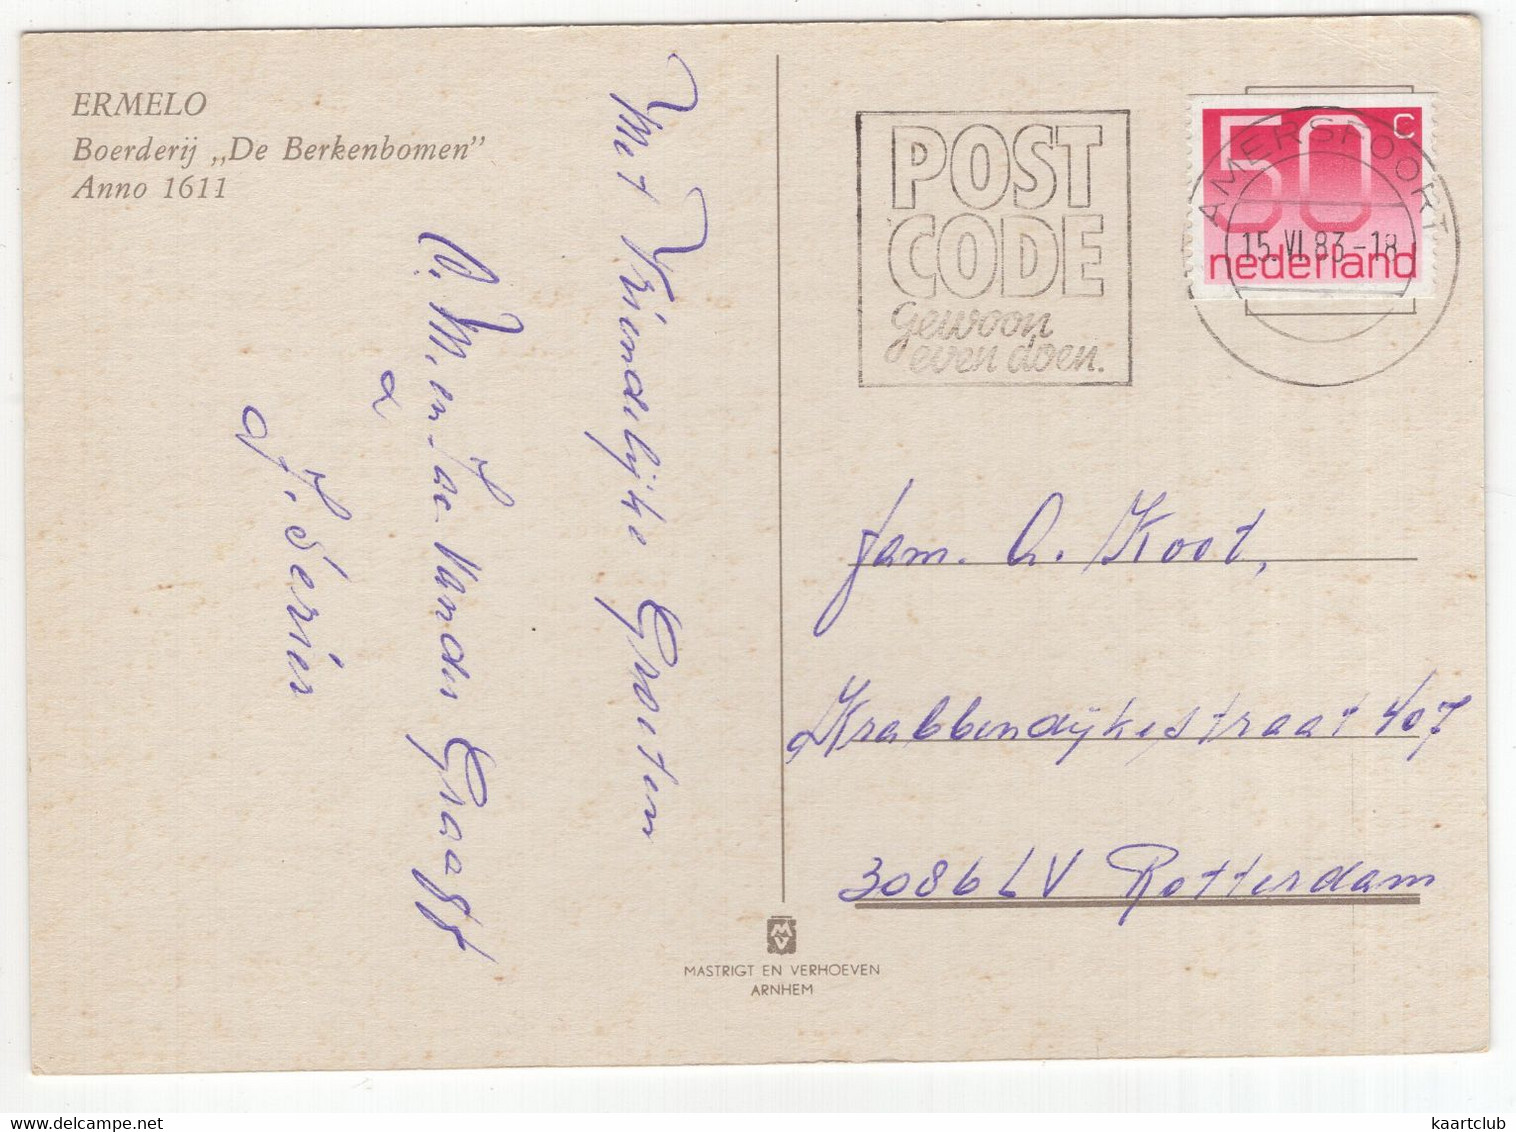 ERMELO
Boerderij „De Berkenbomen”
Anno 1611
Met Vriendelijke Groeten
v. der Graaff
J. Serier
POST
CODE
gewoon
even doen.
AMERSFOORT
15.VI.83-18
50 C
nederland
Fam. A. Koot,
Krabbendijkestraat 407
3086 LV Rotterdam
MV
MASTRIGT EN VERHOEVEN
ARNHEM
kaartclub
www.delcampe.net